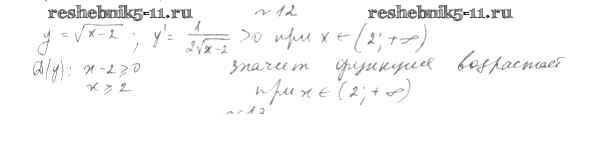 reshebnik5-11.ru
reshebnik5-11.ru
№ 12
y = √(x-2) ; y' = 1/(2√(x-2)) > 0 при x ∈ (2; +∞)
D(y): x - 2 ≥ 0 значит функция возрастает
x ≥ 2 при x ∈ (2; +∞)